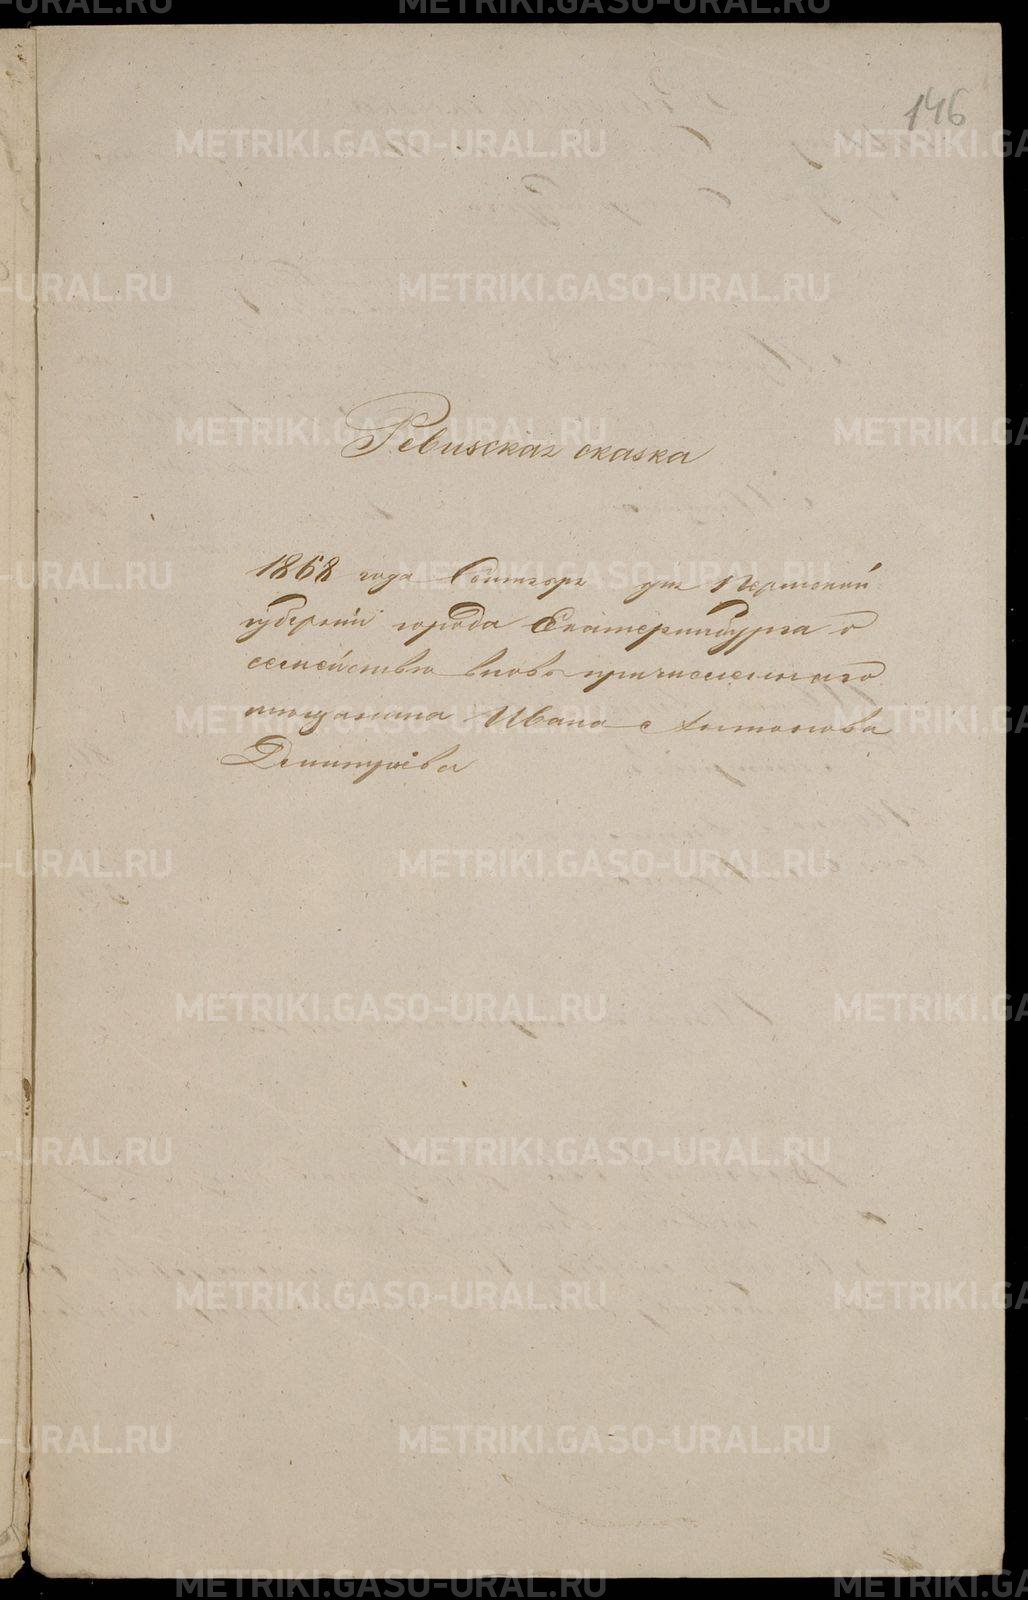 146
Ревизская сказка
1868 года Октября дня Пермской
губернии города Екатеринбурга о
семействе вновь причисленнаго
мещанина Ивана Антонова
Дмитриева
METRIKI.GASO-URAL.RU